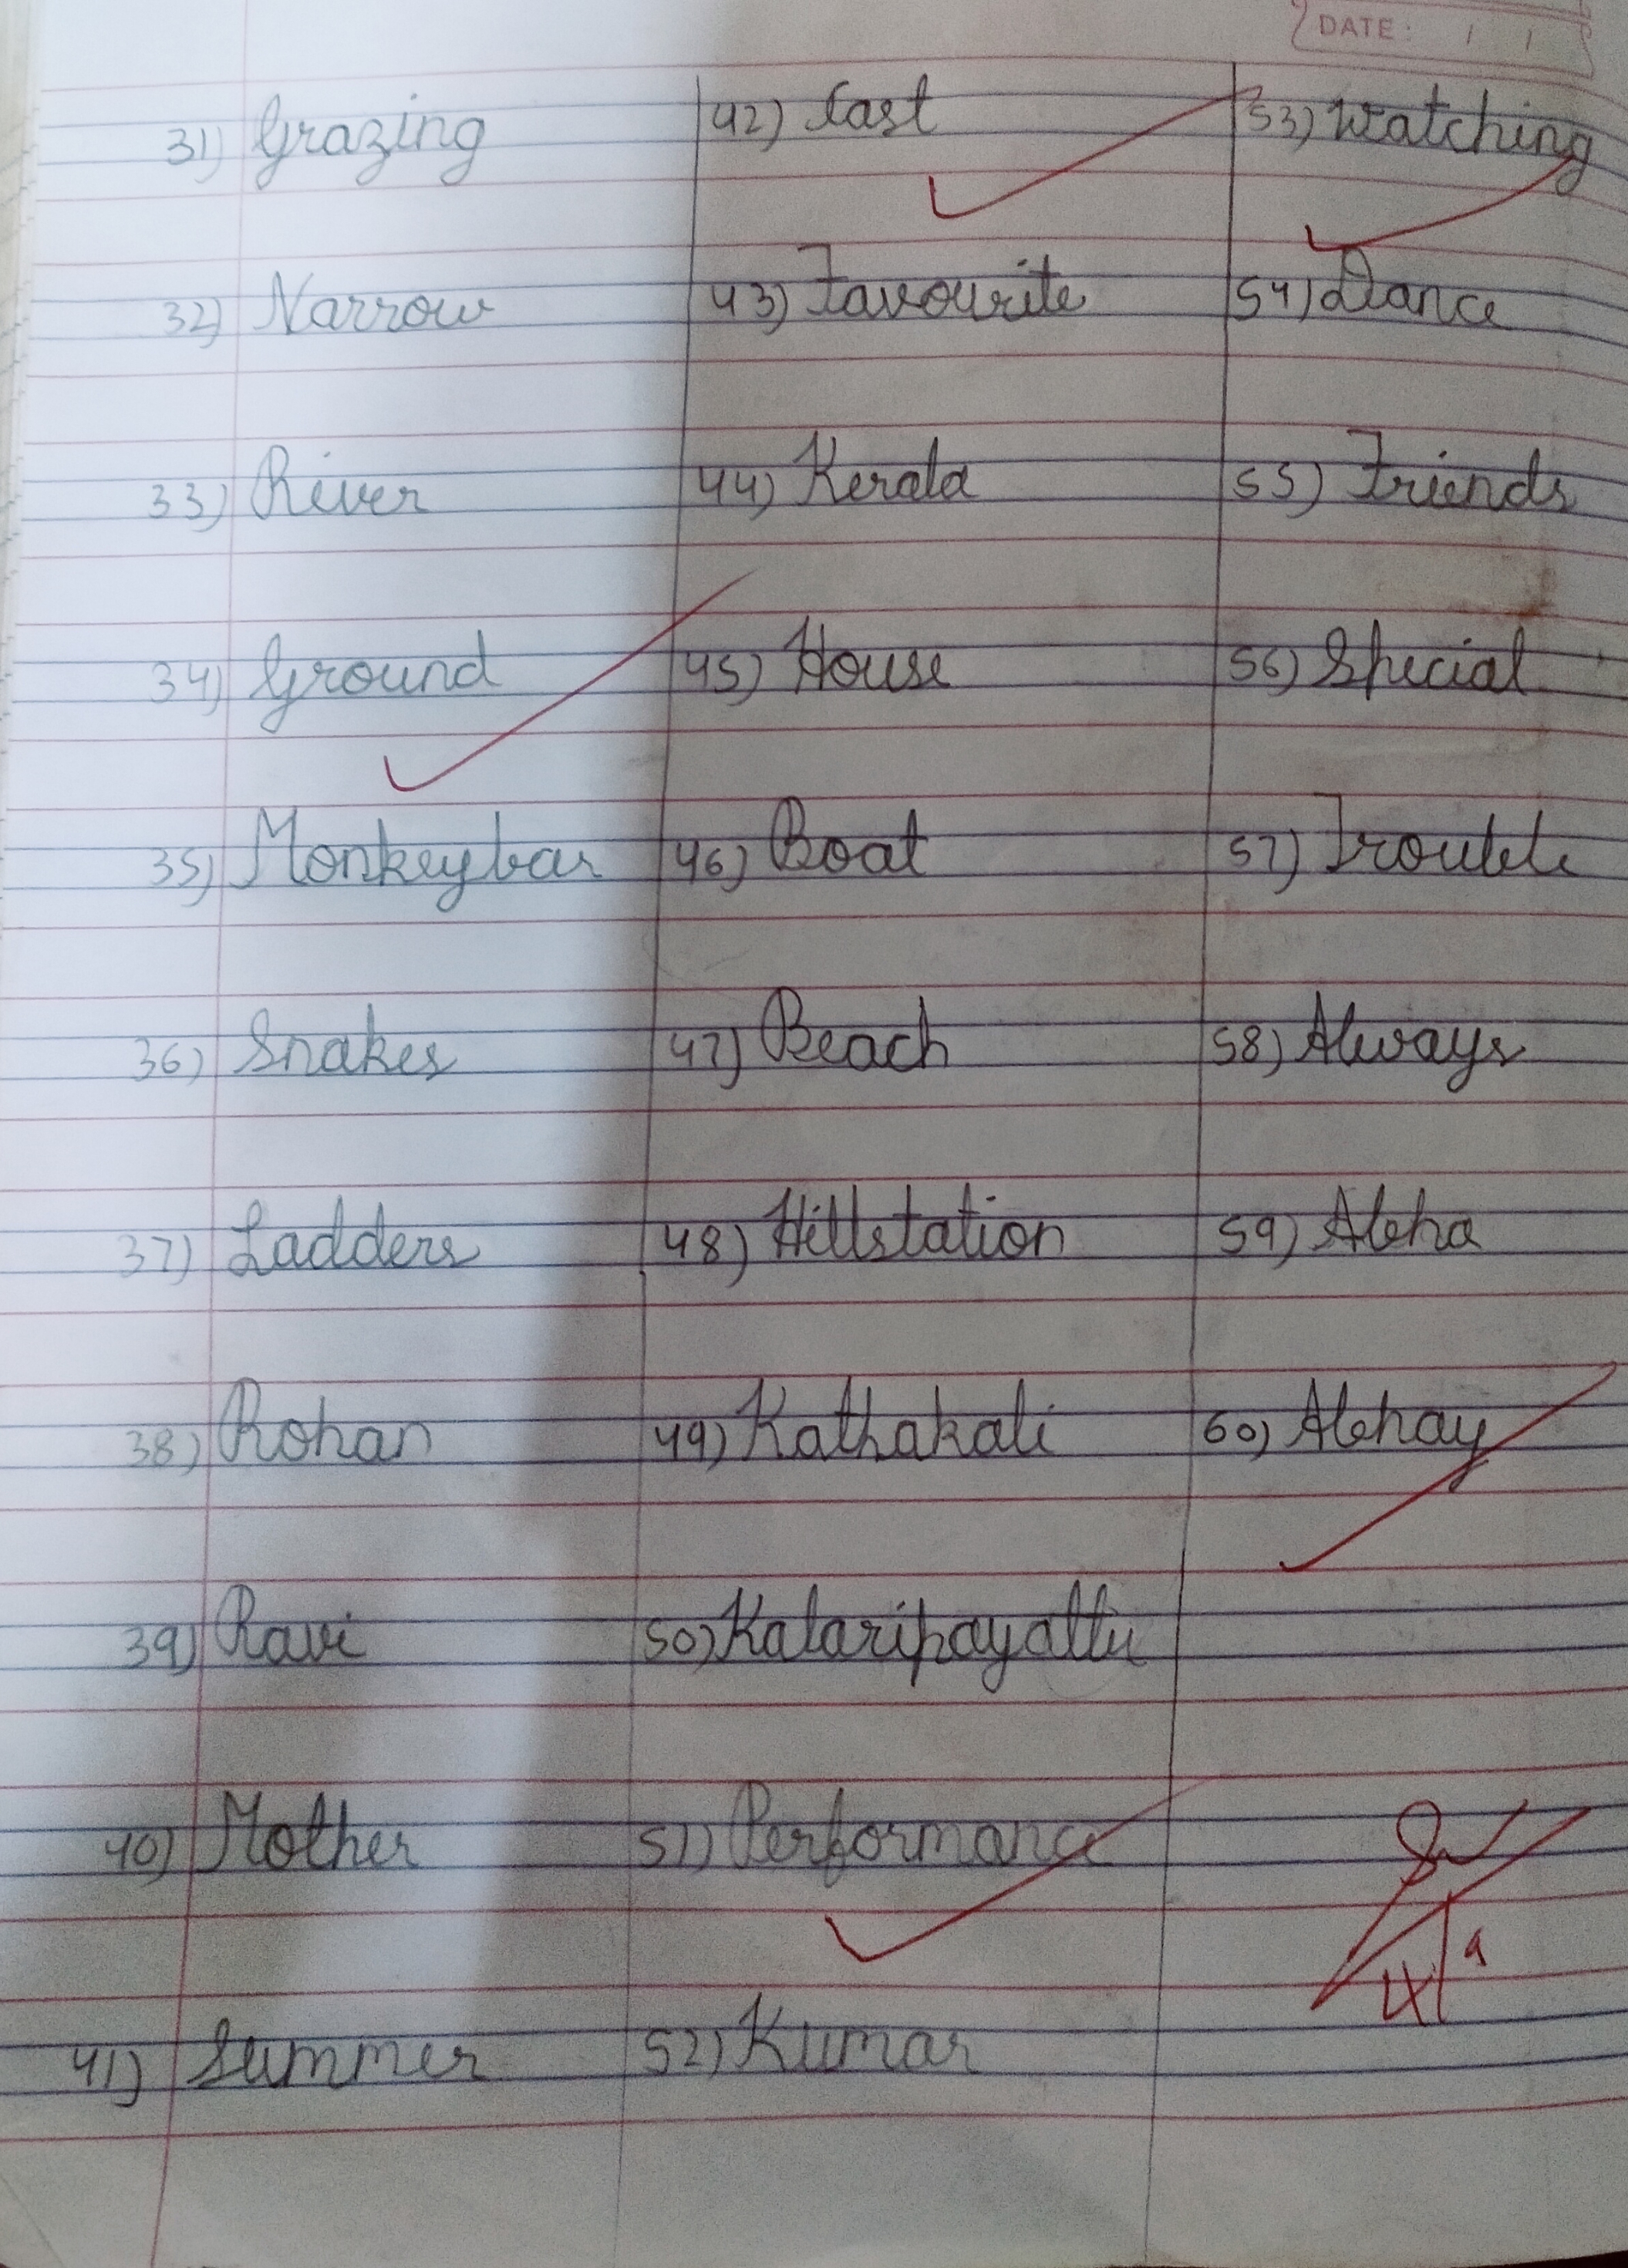 DATE: / /
31) Grazing
32) Narrow
33) River
34) Ground
35) Monkeybar
36) Snakes
37) Ladders
38) Rohan
39) Ravi
40) Mother
41) Summer
42) Last
43) Favourite
44) Kerala
45) House
46) Boat
47) Beach
48) Hillstation
49) Kathakali
50) Kalaripayattu
51) Performance
52) Kumar
53) Watching
54) Dance
55) Friends
56) Special
57) Trouble
58) Always
59) Abha
60) Abhay